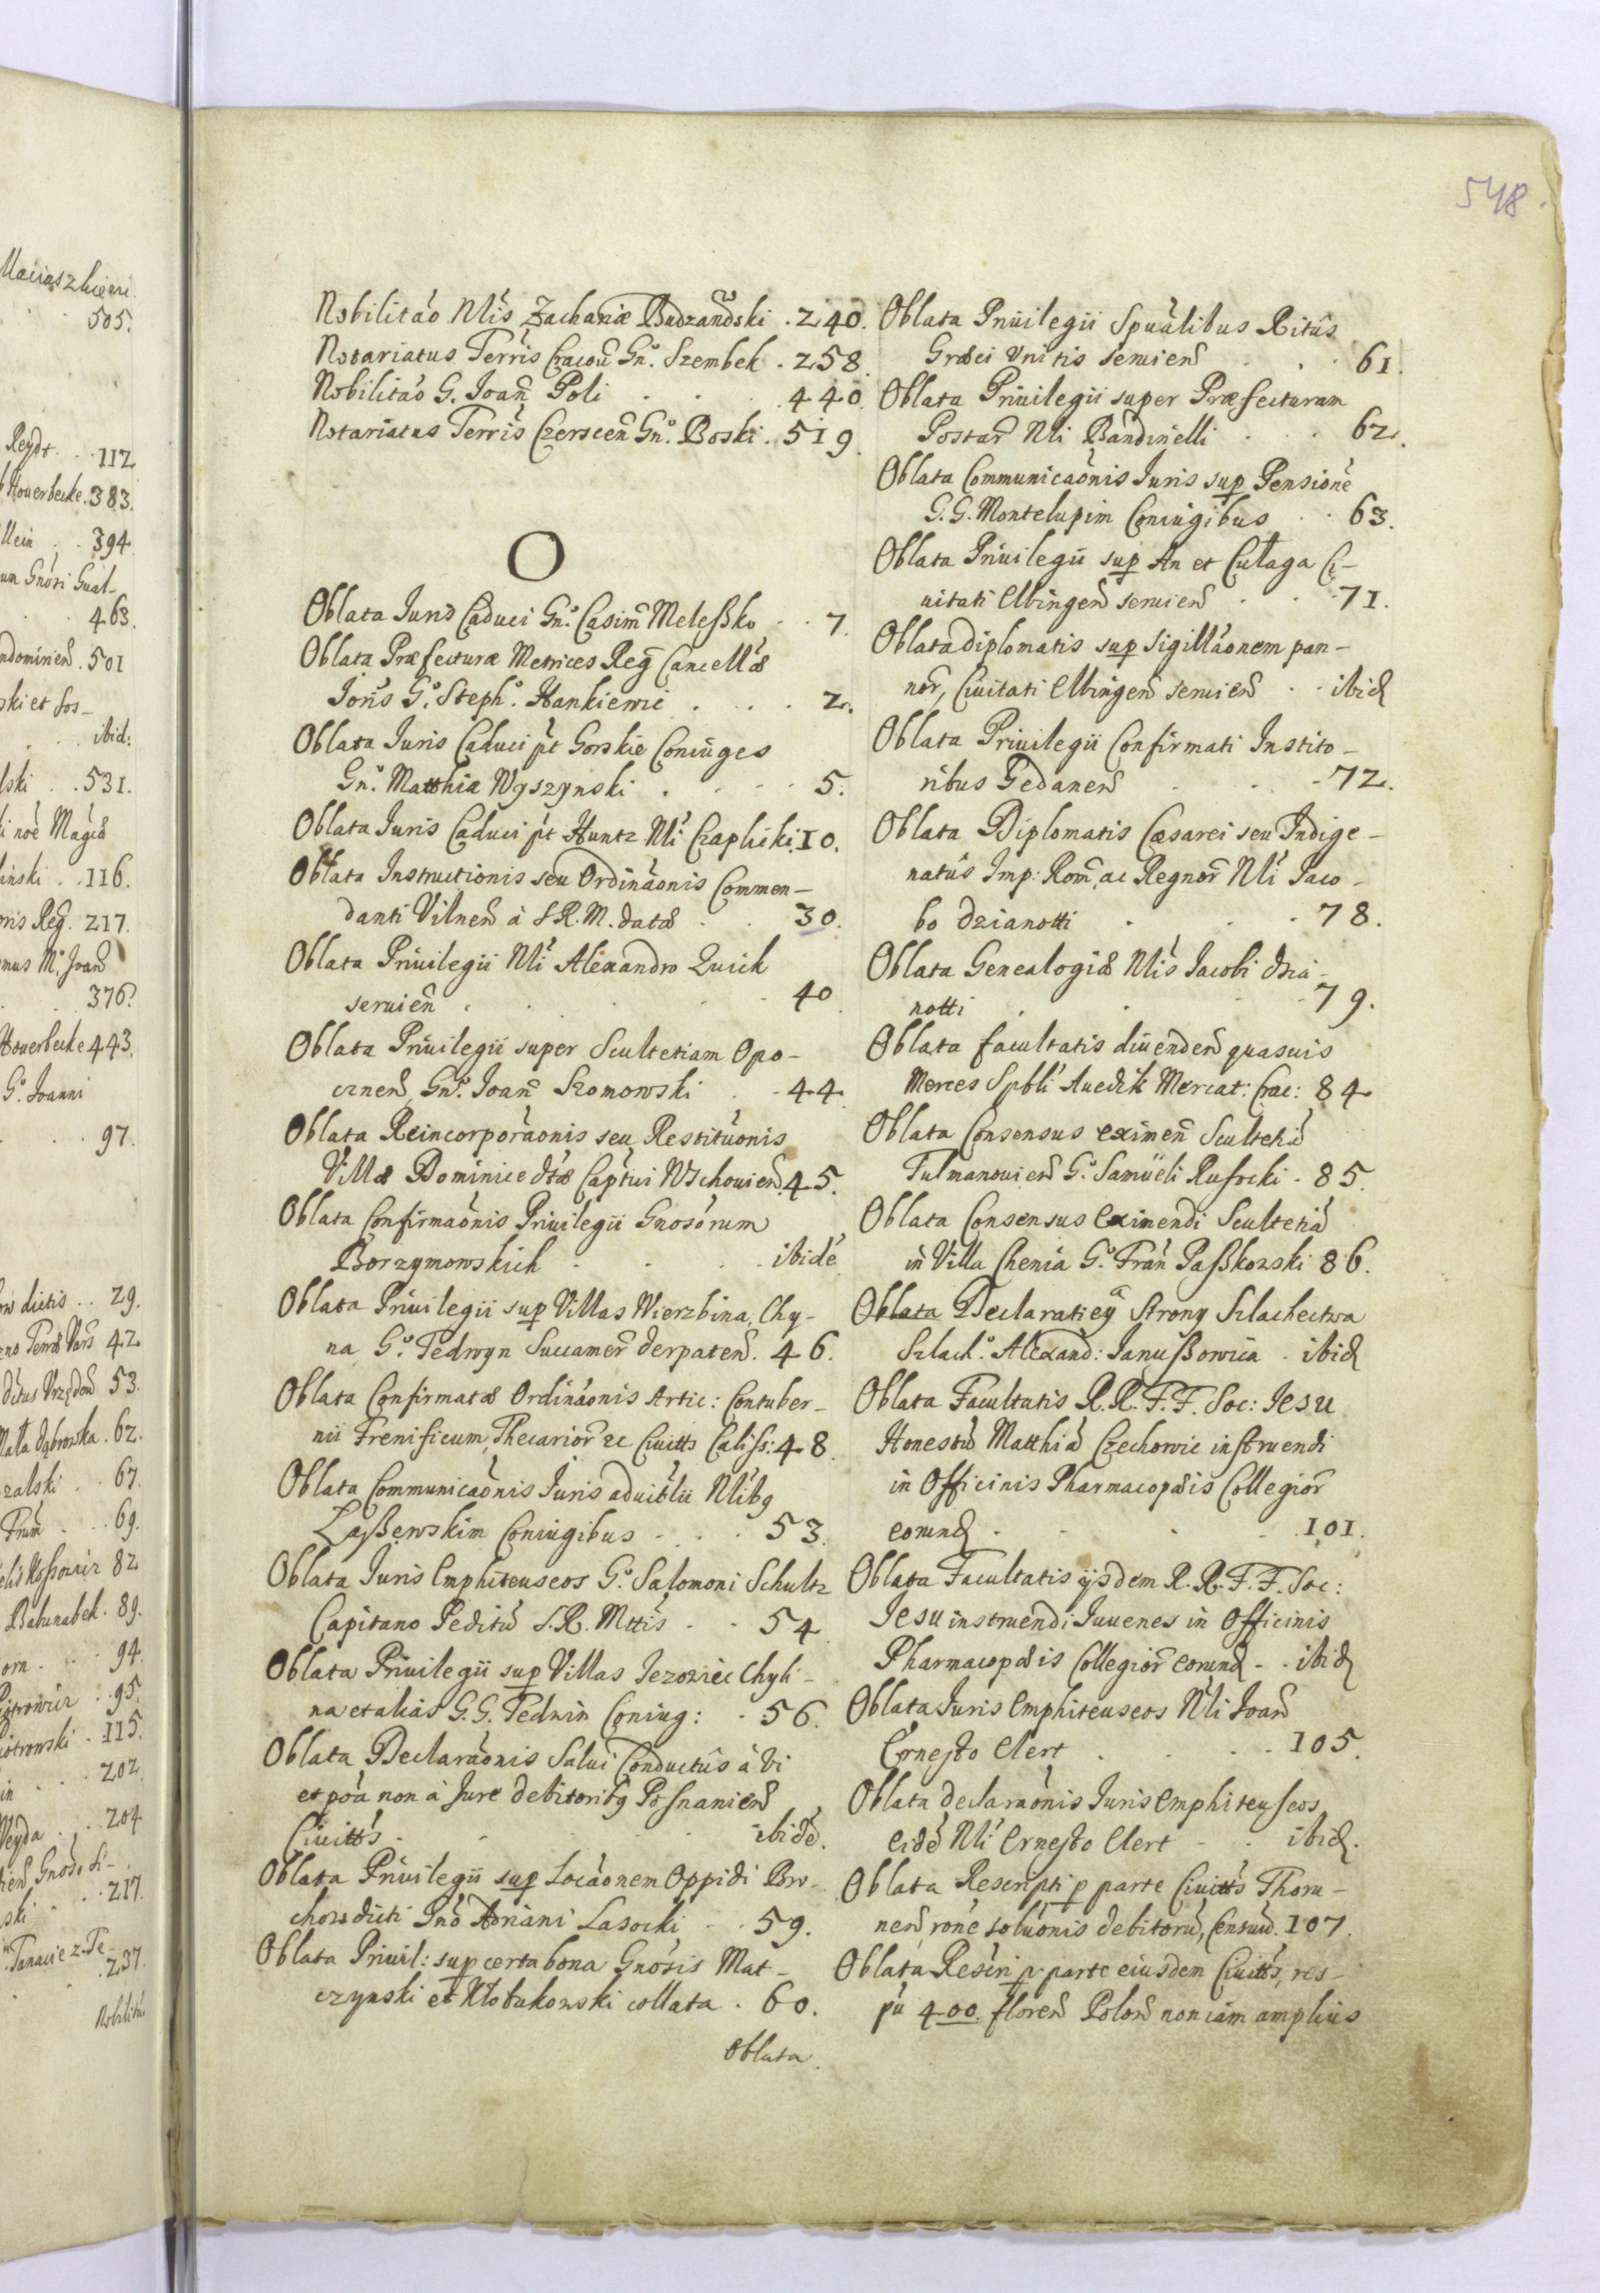 548.
Maciaszkiewi
505.
Reydt . . 112
Houerbecke . 383.
llein . . 394
um Gnósi Gual-
463.
ndomirien̄ . 501
ski et Sos-
ibid:
lski . . 531.
i noē Magiæ
linski . . 116.
oris Reg. 217.
mus M. Joan̄
376.
Houerbecke 443.
G.º Joanni
97.
dictis . . 29.
42
53.
Dąbrowska . 62.
zalski . . 67.
69.
82
Babunabek . 89.
orn . . 94.
Piotrowicz . . 95.
iotrowski . 115.
in . . 202.
Weyda . . 204
217.
ski
237.
Nobilitáo
Nobilitáo Nlis Zachariæ Budzan̄dski . 240.
Notariatus Terris Cracoū Gn.º Szembek . 258.
Nobilitáo G. Joan̄ Poli . . . 440.
Notariatus Terris Czerscen̄ Gn.º Boski . 519.
O
Oblata Juris Caduci Gn.º Casim̄ Meleßko . . 7.
Oblata Præfecturæ Metrices Reg̃ Cancellæ
Joris G.º Steph.º Hankiewic . . . 2.
Oblata Juris Caduci pt Gorskie Coniuges
Gn.º Matthiæ Wyszynski . . . . 5.
Oblata Juris Caduci pt Huntz Nli Czaplicki. 10.
Oblata Instructionis seu Ordináonis Commen-
danti Vilnen̄ à S.R.M. datæ . . 30.
Oblata Priuilegii Nli Alexandro Zuick
seruien̄ . . . . . 40
Oblata Priuilegii super Scultetiam Opo-
cznen̄, Gn.º Joan̄ Szomowski . . 44.
Oblata Reincorporáonis seu Restituónis
Villæ Dominice dtæ Captui Wschouien̄. 45.
Oblata Confirmaónis Priuilegii Gnosórum
Borzymowskich . . . . ibidē
Oblata Priuilegii sup Villas Wierzbina, Chy-
na G.º Tedwyn Succamer̄ Derpaten̄. 46.
Oblata Confirmatæ Ordináonis Artic: Contuber-
nii Frenificum, Thecarior̄ &c Ciuitts Caliss: 48.
Oblata Communicaónis Juris aduitlii Nlibg
Laßewskim Coniugibus . . . 53.
Oblata Juris Emphiteuseos G.º Salomoni Schultz
Capitano Peditū S.R. Mttis . . 54
Oblata Priuilegii sup Villas Jezoriec Chyli-
na et alias G.G. Tedwin Coniug: . 56.
Oblata Declaraónis Salui Conductûs à Vi
et póa non à Jure debitoribg Posnanien̄
Ciuitts . . . . ibidē.
Oblata Priuilegii sup Locáonem Oppidi Bro-
chow dicti Gnō Adriani Lasocki . . 59.
Oblata Priuil: sup certa bona Gnósis Mat-
czynski et Kłobukowski collata . 60.
Oblata
Oblata Priuilegii Spuálibus Ritûs
Græci Vnitis seruien̄ . . . 61.
Oblata Priuilegii super Præfecturam
Postar̄ Nli Bandinelli . . . 62.
Oblata Communicaónis Juris sup Pensionē
G.G. Montelupim Coniugibus . . 63.
Oblata Priuilegii sup An et Culaga Ci-
uitati Elbingen̄ seruien̄ . . . 71.
Oblata diplomatis sup sigilláonem pan-
nor̄, Ciuitati Elbingen̄ seruien̄ . . ibid
Oblata Priuilegii Confirmati Instito-
ribus Gedanen̄ . . . 72.
Oblata Diplomatis Cæsarei seu Indige-
natûs Imp: Rom̄, ac Regnor̄ Nli Jaco-
bo Dzianotti . . . 78.
Oblata Genealogiæ Nlis Jacobi Dzia-
notti . . . . 79.
Oblata facultatis diuenden̄ quasuis
Merces Spbli Auedik Mercat: Crac: 84
Oblata Consensus eximen̄ Scultetiā
Tulmanouien̄ G.º Samüeli Rusocki . 85.
Oblata Consensus Eximendi Scultetiā
in Villa Chenia G.º Fran̄ Paßkowski 86.
Oblata Declaratiey Strony Szlachectwa
Szlach.º Alexand: Janußowica . ibid
Oblata Facultatis R.R.F.F. Soc: Jesu
Honestū Matthiā Czechowic instruendi
in Officinis Pharmacopæis Collegior̄
eorund . . . . 101.
Oblata Facultatis ijsdem R.R.F.F. Soc:
Jesu instruendi Juuenes in Officinis
Pharmacopæis Collegior̄ eorund . . ibid
Oblata Juris Emphiteuseos Nli Joan̄
Ernesto Elert . . . . 105.
Oblata declaraónis Juris Emphiteuseos
eidē Nli Ernesto Elert . . ibid.
Oblata Rescripti p parte Ciuitts Thoru-
nen̄, rone soluónis debitorū, Censuū. 107.
Oblata Rescri p parte eiusdem Ciuitts, res-
pu 400. floren̄ Polon̄ non iam amplius